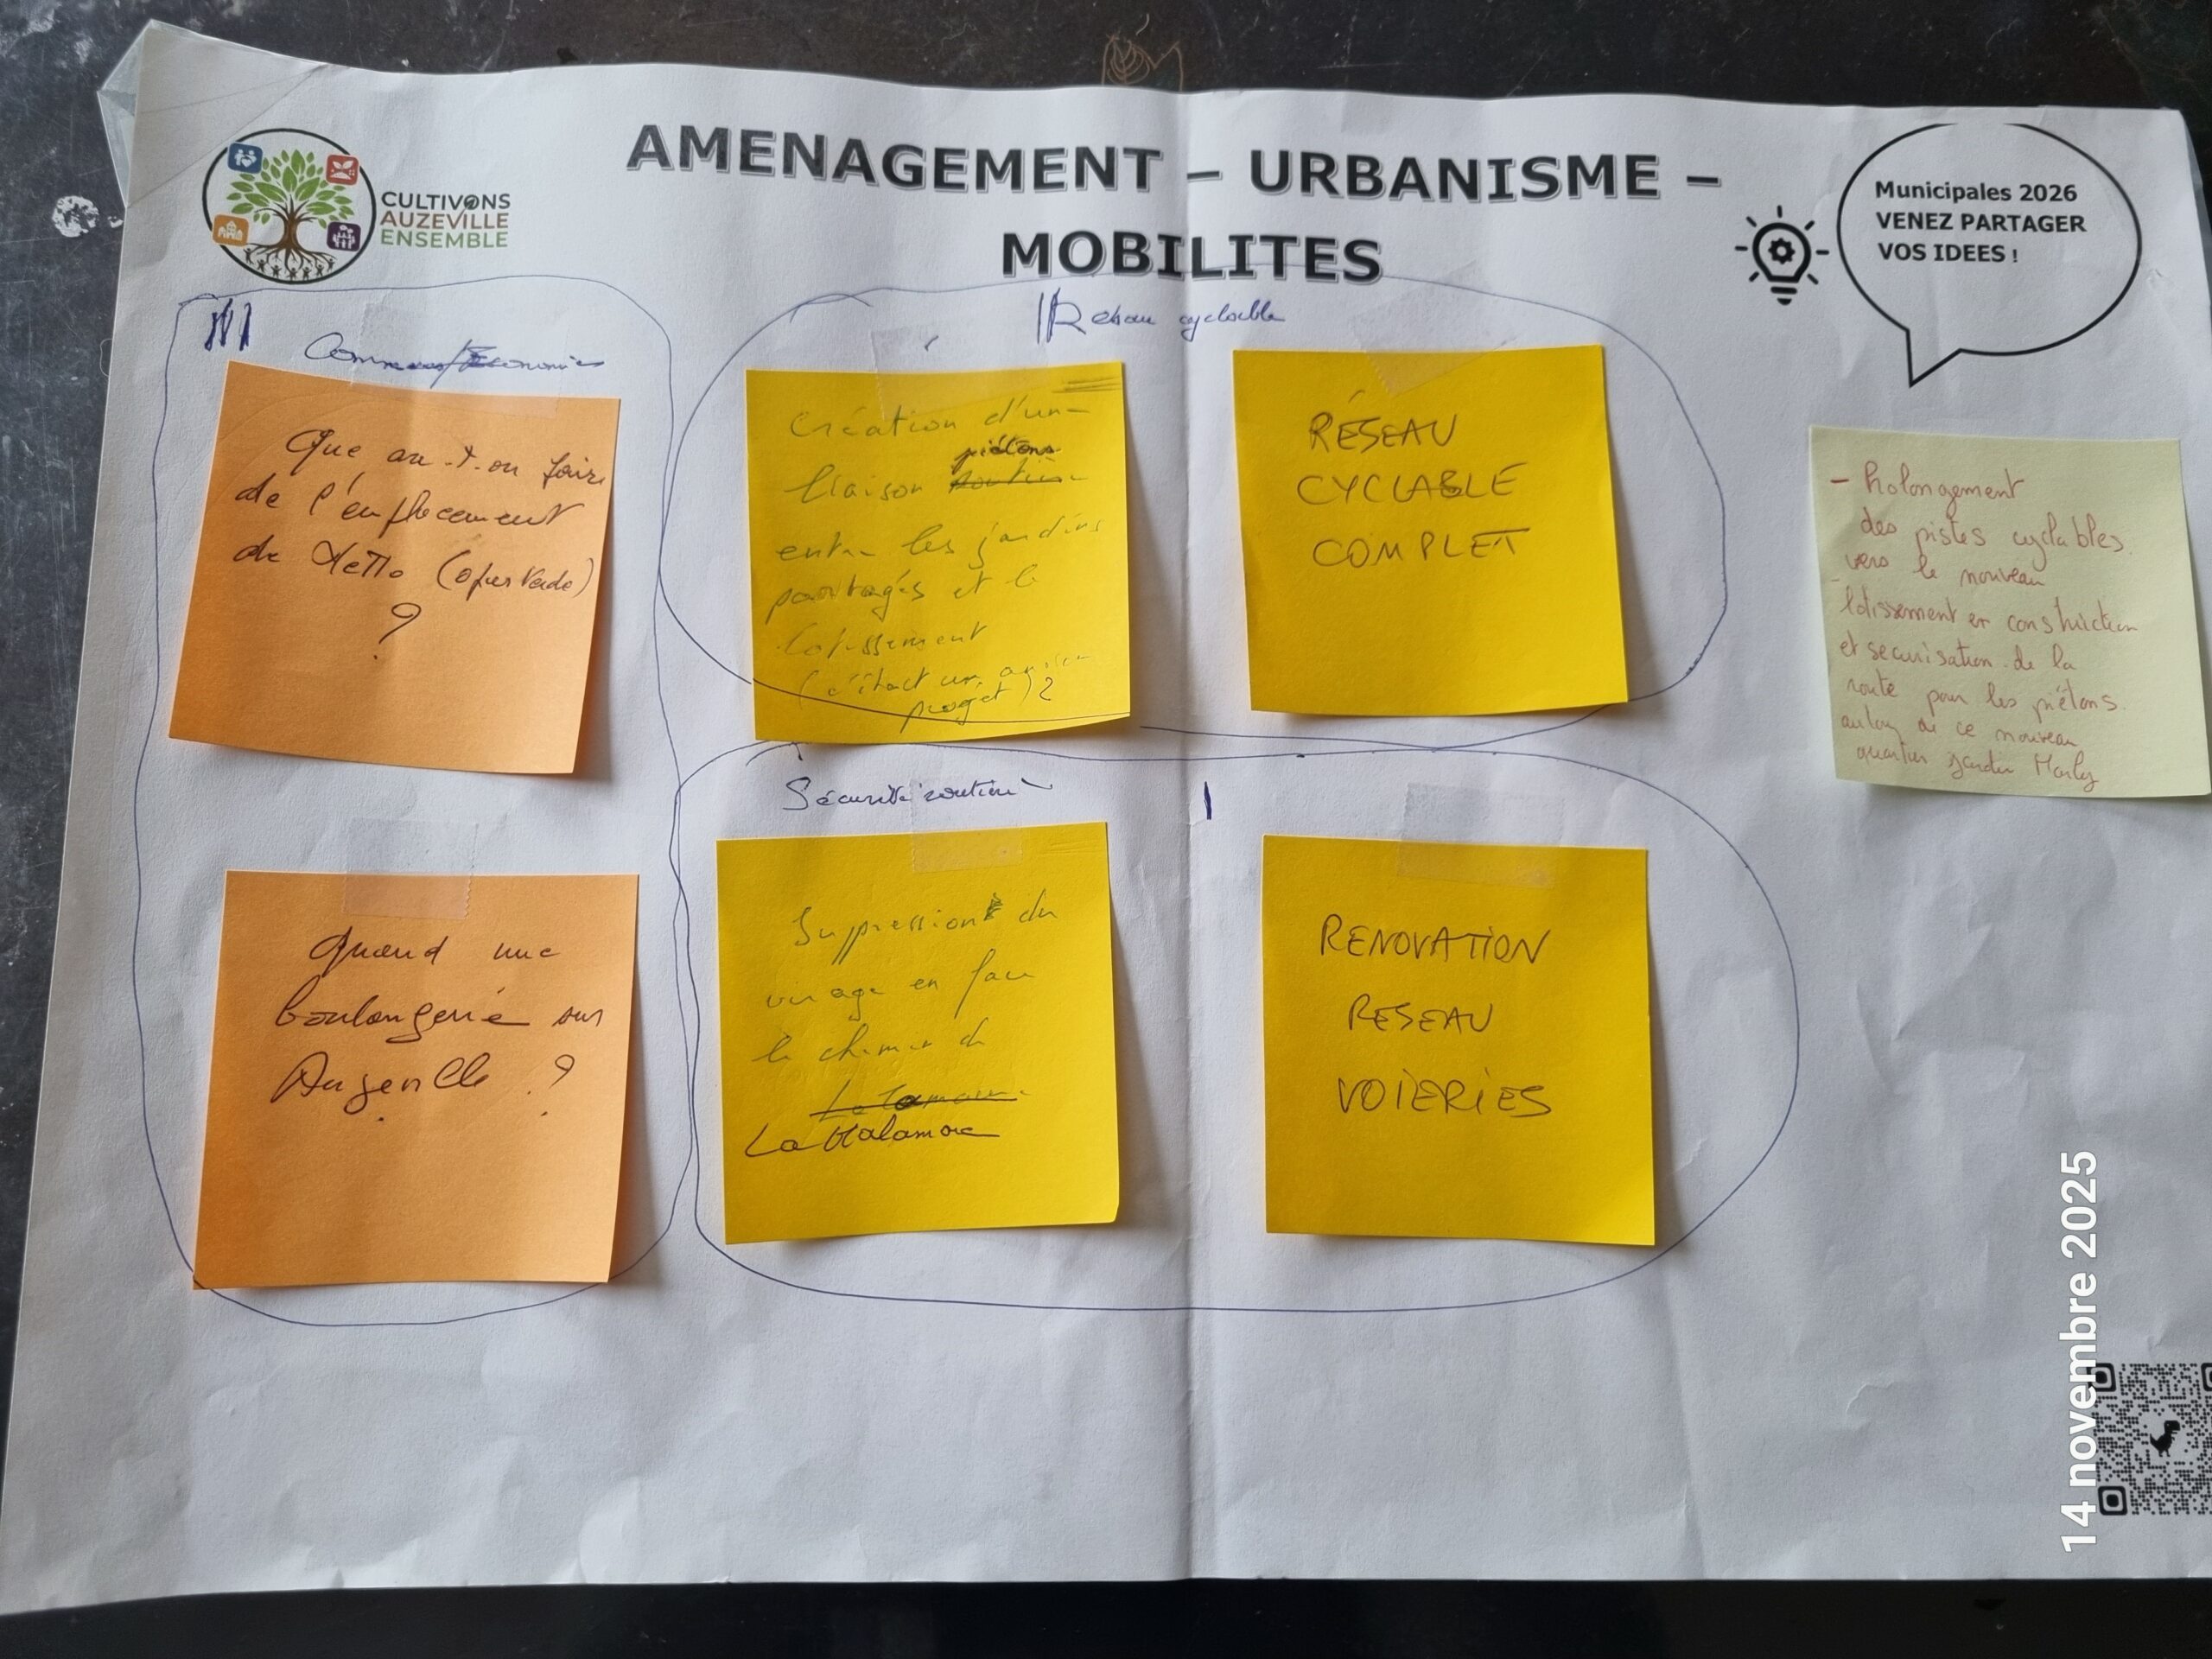 CULTIVONS
AUZEVILLE
ENSEMBLE
AMENAGEMENT – URBANISME –
MOBILITES
Municipales 2026
VENEZ PARTAGER
VOS IDEES !
Commerce/Economie
Que va-t-on faire
de l'emplacement
de Netto (opus Verde)
?
Quand une
boulangerie sur
Auzeville ?
Réseau cyclable
Création d'une
piétons
liaison routière
entre les jardins
partagés et le
lotissement
(c'était un ancien
projet) ?
RÉSEAU
CYCLABLE
COMPLET
Sécurité routière
Suppression du
virage en face
le chemin de
La
RENOVATION
RESEAU
VOIERIES
- Prolongement
des pistes cyclables
vers le nouveau
lotissement en construction
et securisation de la
route pour les piétons
autour de ce nouveau
quartier jardin Marly
14 novembre 2025